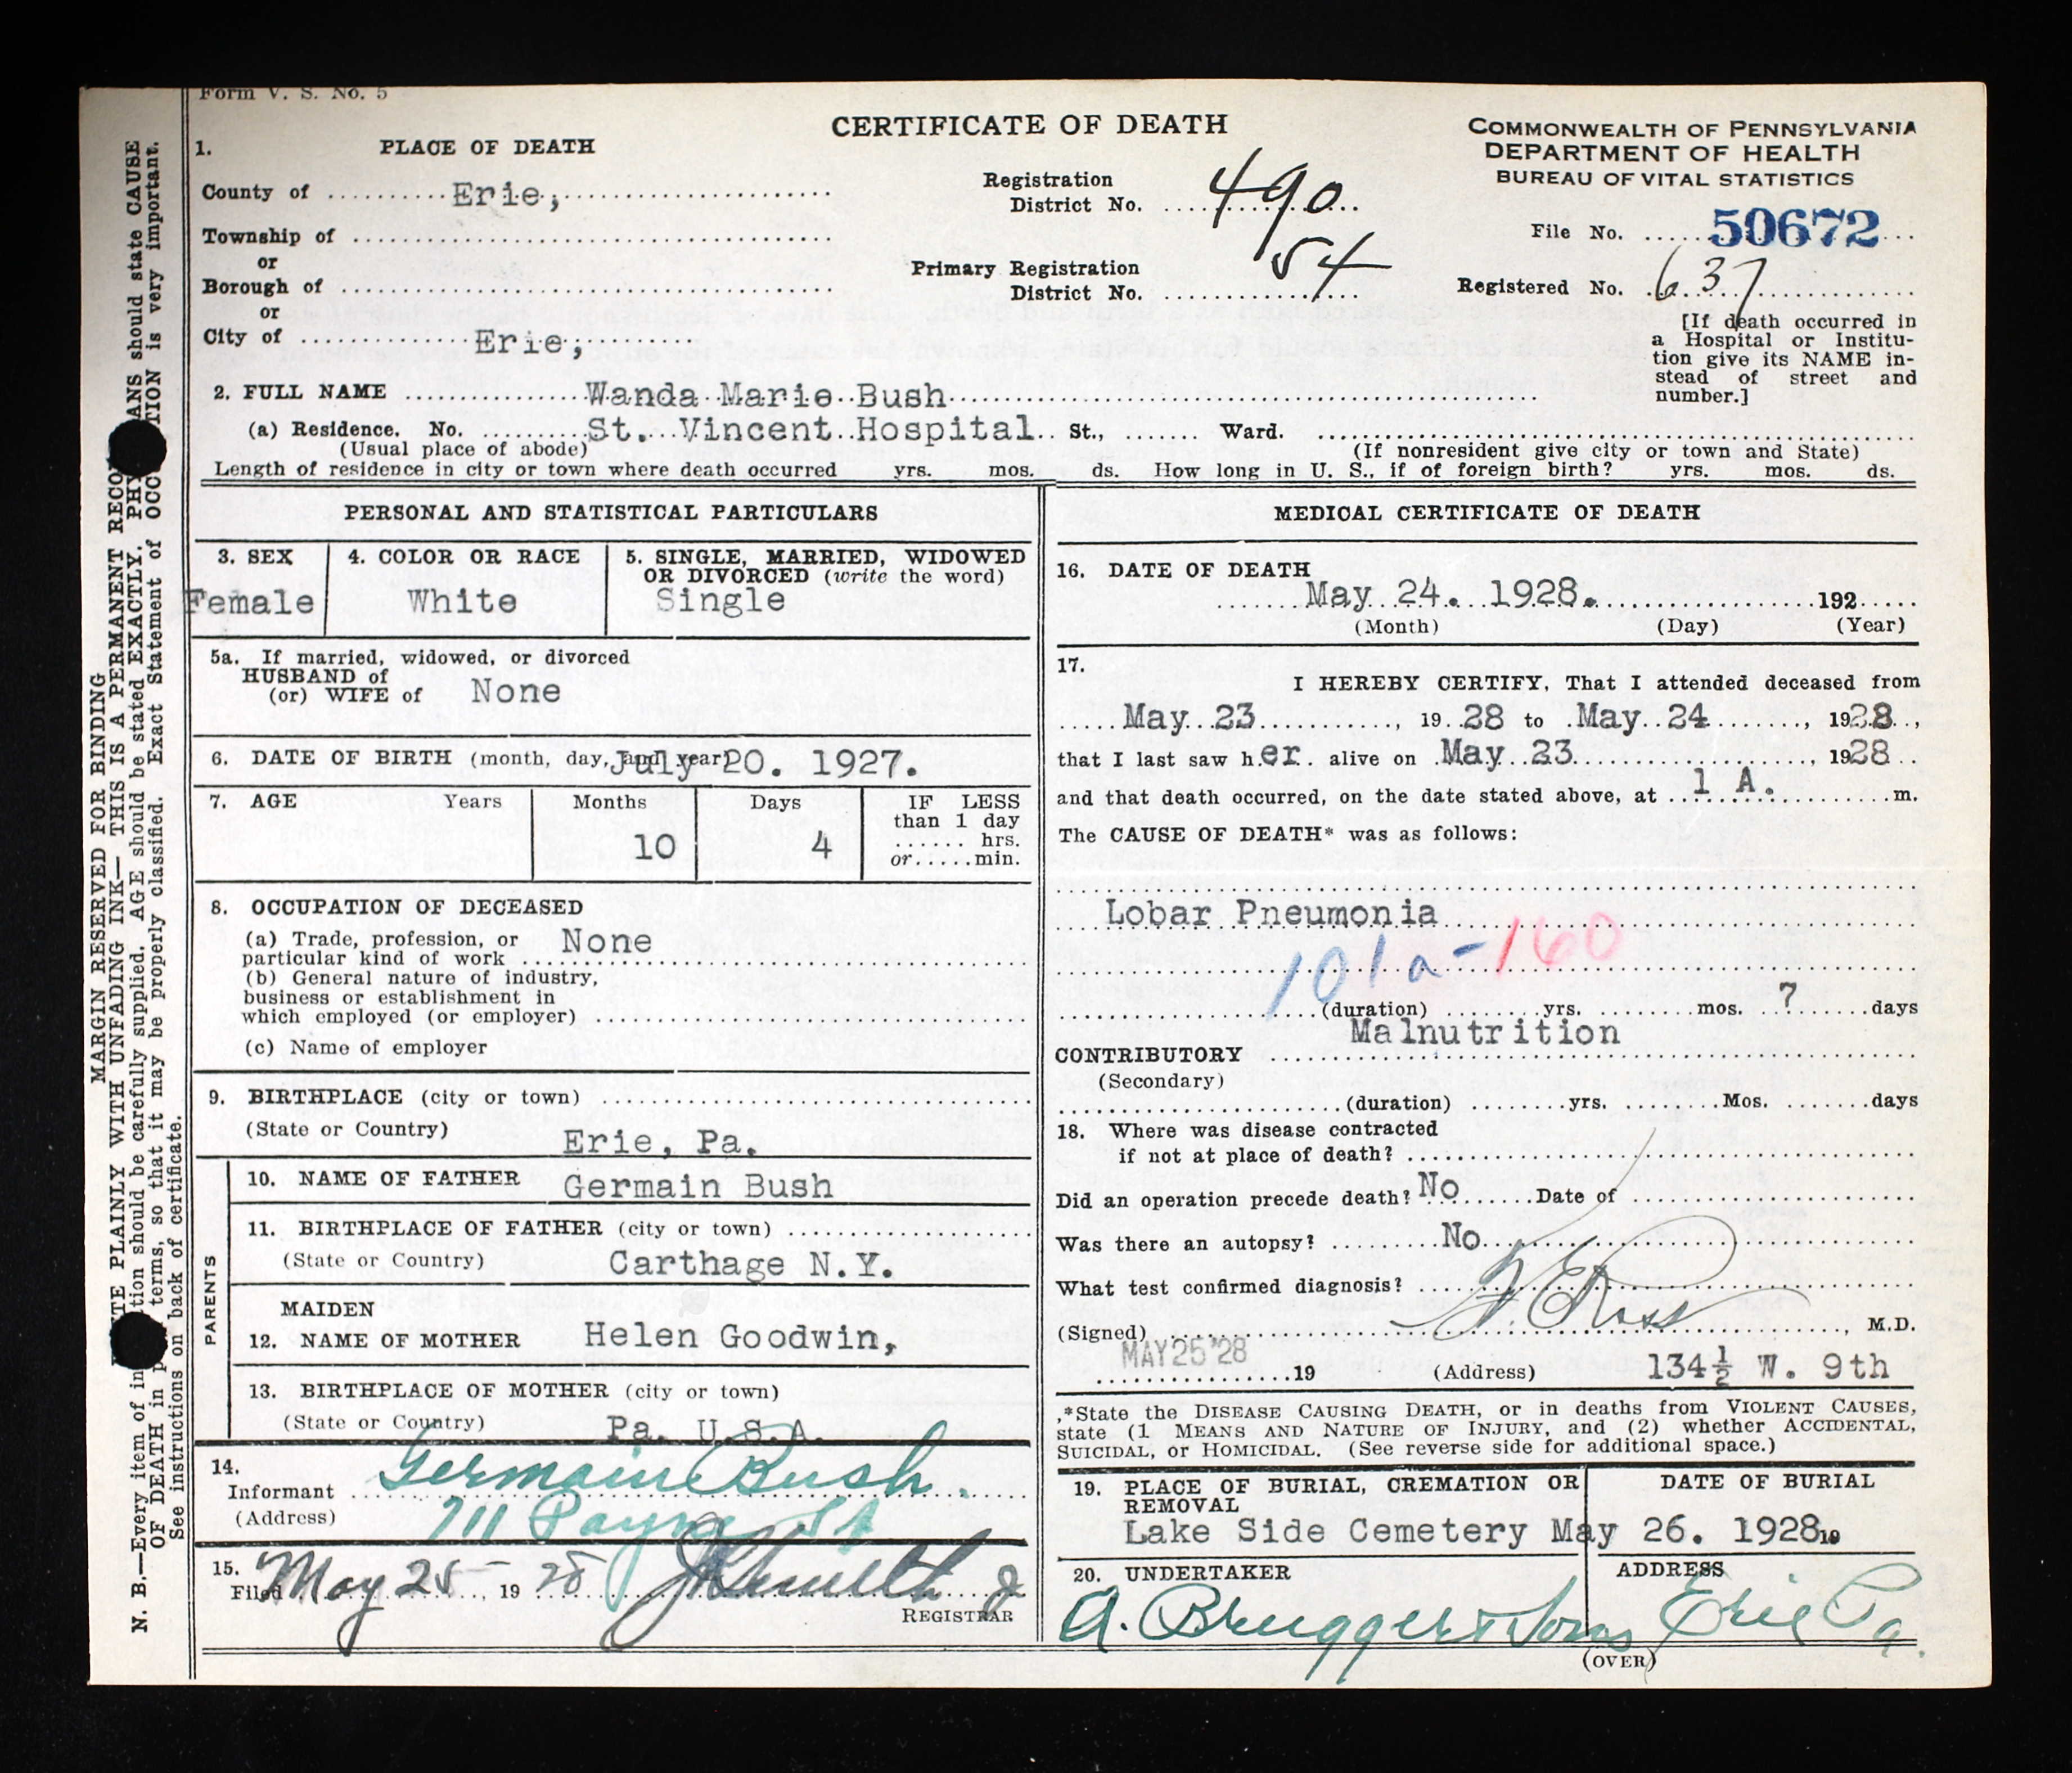 Form V. S. No. 5
CERTIFICATE OF DEATH
COMMONWEALTH OF PENNSYLVANIA
DEPARTMENT OF HEALTH
BUREAU OF VITAL STATISTICS
1. PLACE OF DEATH
County of Erie,
Township of
or
Borough of
or
City of Erie,
Registration
District No. 490
Primary Registration
District No. 54
File No. 50672
Registered No. 637
[If death occurred in
a Hospital or Institu-
tion give its NAME in-
stead of street and
number.]
2. FULL NAME Wanda Marie Bush
(a) Residence. No. St. Vincent Hospital St., Ward.
(Usual place of abode) (If nonresident give city or town and State)
Length of residence in city or town where death occurred yrs. mos. ds. How long in U. S., if of foreign birth? yrs. mos. ds.
PERSONAL AND STATISTICAL PARTICULARS
3. SEX
Female
4. COLOR OR RACE
White
5. SINGLE, MARRIED, WIDOWED
OR DIVORCED (write the word)
Single
5a. If married, widowed, or divorced
HUSBAND of
(or) WIFE of None
6. DATE OF BIRTH (month, day, and year) July 20. 1927.
7. AGE Years Months Days
10 4
IF LESS
than 1 day
hrs.
or min.
8. OCCUPATION OF DECEASED
(a) Trade, profession, or
particular kind of work None
(b) General nature of industry,
business or establishment in
which employed (or employer)
(c) Name of employer
9. BIRTHPLACE (city or town)
(State or Country) Erie, Pa.
PARENTS
10. NAME OF FATHER Germain Bush
11. BIRTHPLACE OF FATHER (city or town)
(State or Country) Carthage N.Y.
MAIDEN
12. NAME OF MOTHER Helen Goodwin,
13. BIRTHPLACE OF MOTHER (city or town)
(State or Country) Pa. U.S.A.
14.
Informant Germain Bush.
(Address) 711 Payne St
15.
Filed May 25 1928
REGISTRAR
MEDICAL CERTIFICATE OF DEATH
16. DATE OF DEATH
May 24. 1928. 192
(Month) (Day) (Year)
17.
I HEREBY CERTIFY, That I attended deceased from
May 23, 19 28 to May 24, 1928,
that I last saw her alive on May 23, 1928
and that death occurred, on the date stated above, at 1 A. m.
The CAUSE OF DEATH* was as follows:
Lobar Pneumonia
101a-160
(duration) yrs. mos. 7 days
Malnutrition
CONTRIBUTORY
(Secondary)
(duration) yrs. Mos. days
18. Where was disease contracted
if not at place of death?
Did an operation precede death? No Date of
Was there an autopsy? No
What test confirmed diagnosis?
(Signed) Ross, M.D.
MAY 25 '28
19 (Address) 134½ W. 9th
*State the DISEASE CAUSING DEATH, or in deaths from VIOLENT CAUSES,
state (1 MEANS AND NATURE OF INJURY, and (2) whether ACCIDENTAL,
SUICIDAL, or HOMICIDAL. (See reverse side for additional space.)
19. PLACE OF BURIAL, CREMATION OR
REMOVAL
Lake Side Cemetery
DATE OF BURIAL
May 26. 1928 19
20. UNDERTAKER
A. Brugger & Sons
ADDRESS
Erie Pa.
(OVER)
MARGIN RESERVED FOR BINDING
PLAINLY WITH UNFADING INK—THIS IS A PERMANENT
N. B.—Every item of should be carefully supplied. AGE should be stated EXACTLY. should state CAUSE
OF DEATH in terms, so that it may be properly classified. Exact Statement of is very important.
See instructions on back of certificate.